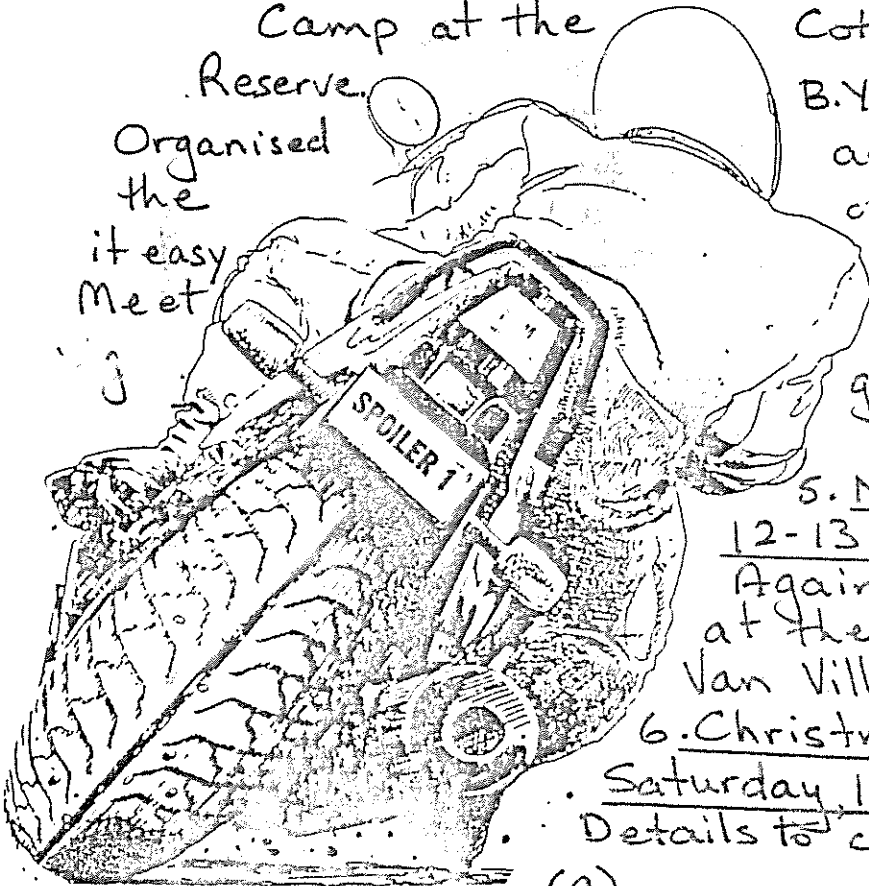 Camp at the
Reserve.
Organised
the
it easy
Meet
SPOILER 1
Cot
B.Y
g
5.
12-13
Again
at the
Van Vill
6. Christm
Saturday 1
Details to c
(2)